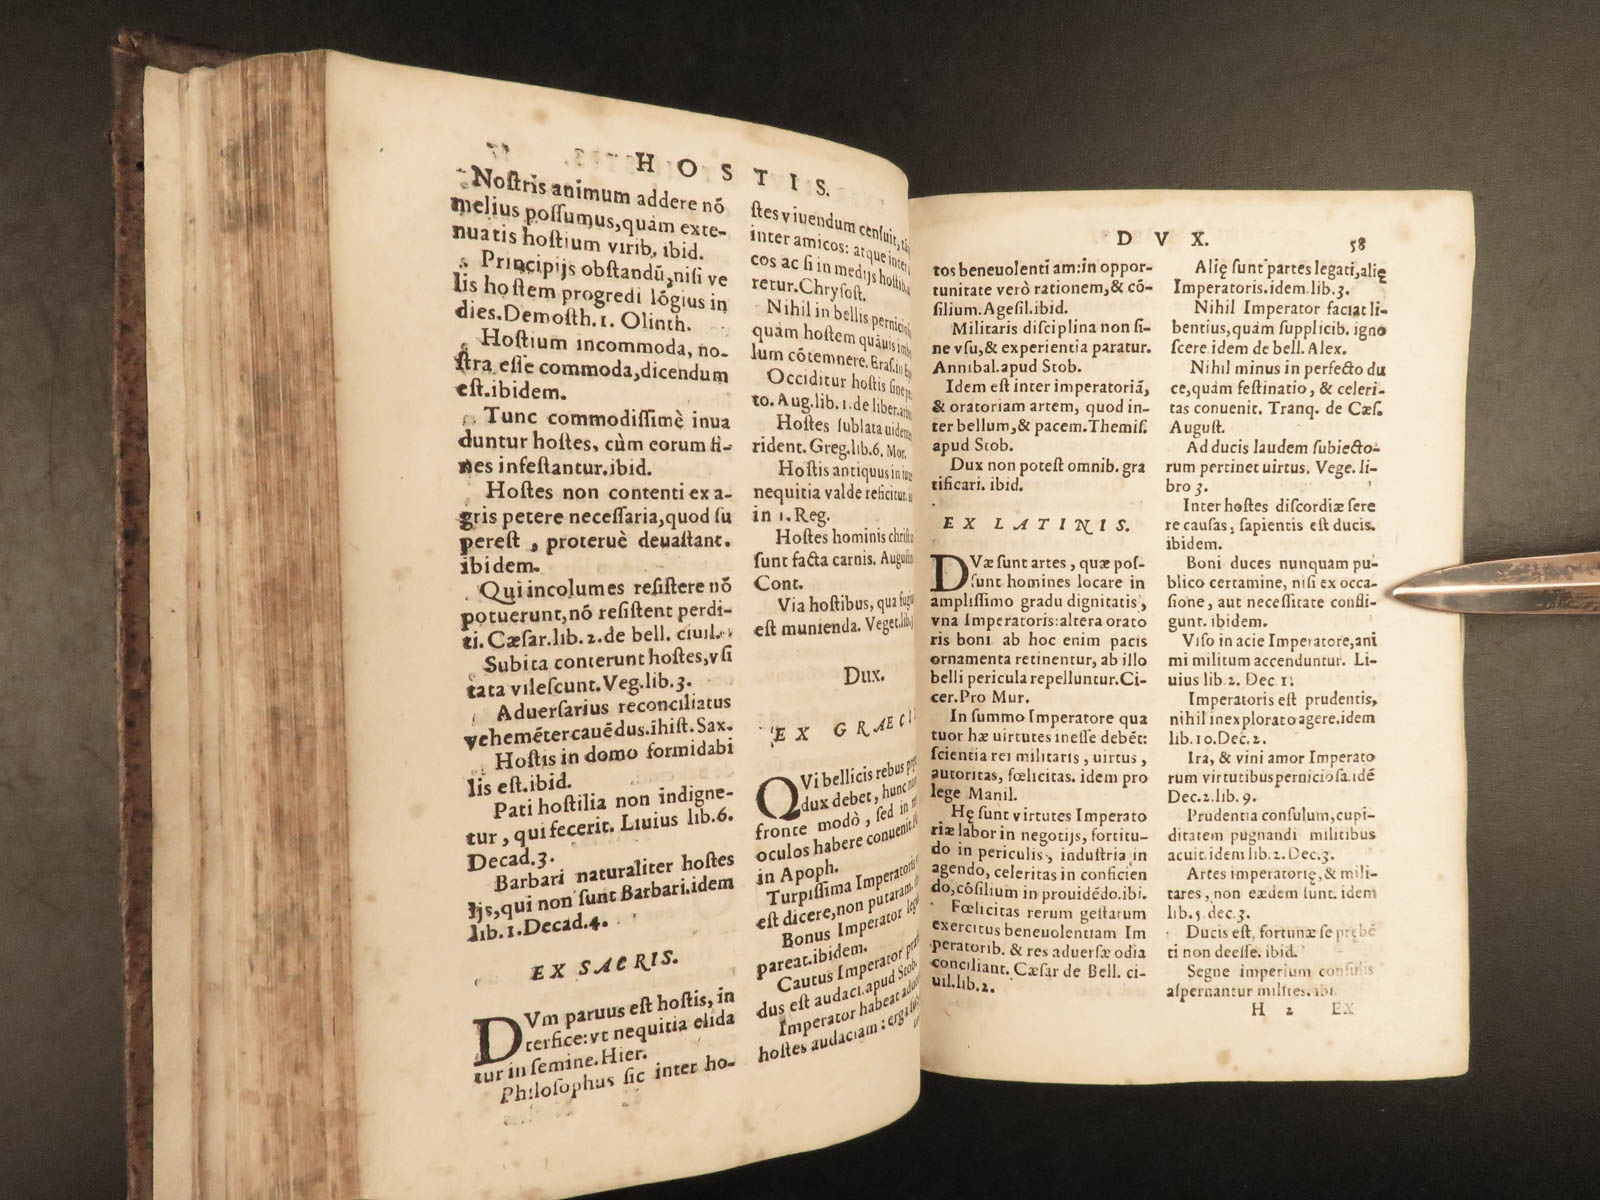 HOSTIS.
Nostris animum addere nō
melius possumus, quàm exte-
nuatis hostium virib. ibid.
Principijs obstandū, nisi ve
lis hostem progredi lōgius in
dies. Demosth. 1. Olinth.
Hostium incommoda, no-
stra esse commoda, dicendum
est. ibidem.
Tunc commodissimè inua
duntur hostes, cùm eorum fi-
nes infestantur. ibid.
Hostes non contenti ex a-
gris petere necessaria, quod su
perest, proteruè deuastant.
ibidem.
Qui incolumes resistere nō
potuerunt, nō resistent perdi-
ti. Cæsar. lib. 2. de bell. ciuil.
Subita conterunt hostes, vsi
tata vilescunt. Veg. lib. 3.
Aduersarius reconciliatus
vehemēter cauēdus. ī hist. Sax.
Hostis in domo formidabi
lis est. ibid.
Pati hostilia non indigne-
tur, qui fecerit. Liuius lib. 6.
Decad. 3.
Barbari naturaliter hostes
ijs, qui non sunt Barbari. idem
lib. 1. Decad. 4.
EX SACRIS.
DVm paruus est hostis, in
terfice: vt nequitia elida
tur in semine. Hier.
Philosophus sic inter ho-
stes viuendum censuit,
inter amicos: atque inter
cos ac si in medijs hostib.
retur. Chrysost.
Nihil in bellis perniciosi
quàm hostem quāuis imbe
lum cōtemnere. Eras. in
Occiditur hostis sine
to. Aug. lib. 1. de liber. arbi
Hostes sublata uidentes
rident. Greg. lib. 6. Mor.
Hostis antiquus in
nequitia valde reficitur.
in 1. Reg.
Hostes hominis christia
sunt facta carnis. Augustin
Cont.
Via hostibus, qua fugi
est munienda. Veget. lib. 3
Dux.
EX GRAECI
QVi bellicis rebus
dux debet, hunc non
fronte modò, sed in
oculos habere conuenit.
in Apoph.
Turpissima Imperatoris
est dicere, non putaram.
Bonus Imperator legi
pareat. ibidem.
Cautus Imperator
dus est audaci. apud Stob.
Imperator habeat aduer
hostes audaciam: erga
DVX. 58
tos beneuolentiam: in oppor-
tunitate verò rationem, & cō-
silium. Agesil. ibid.
Militaris disciplina non si-
ne vsu, & experientia paratur.
Annibal. apud Stob.
Idem est inter imperatoriā,
& oratoriam artem, quod in-
ter bellum, & pacem. Themis.
apud Stob.
Dux non potest omnib. gra
tificari. ibid.
EX LATINIS.
DVæ sunt artes, quæ pos-
sunt homines locare in
amplissimo gradu dignitatis,
vna Imperatoris: altera orato
ris boni ab hoc enim pacis
ornamenta retinentur, ab illo
belli pericula repelluntur. Ci-
cer. Pro Mur.
In summo Imperatore qua
tuor hæ uirtutes inesse debēt:
scientia rei militaris, uirtus,
autoritas, fœlicitas. idem pro
lege Manil.
Hę sunt virtutes Imperato
riæ labor in negotijs, fortitu-
do in periculis, industria in
agendo, celeritas in conficien
do, cōsilium in prouidēdo. ibi.
Fœlicitas rerum gestarum
exercitus beneuolentiam Im
peratorib. & res aduersæ odia
conciliant. Cæsar de Bell. ci-
uil. lib. 2.
Alię sunt partes legati, alię
Imperatoris. idem lib. 3.
Nihil Imperator faciat li-
bentius, quàm supplicib. igno
scere idem de bell. Alex.
Nihil minus in perfecto du
ce, quàm festinatio, & celeri-
tas conuenit. Tranq. de Cæs.
August.
Ad ducis laudem subiecto-
rum pertinet uirtus. Vege. li-
bro 3.
Inter hostes discordiæ sere
re causas, sapientis est ducis.
ibidem.
Boni duces nunquam pu-
blico certamine, nisi ex occa-
sione, aut necessitate confli-
gunt. ibidem.
Viso in acie Imperatore, ani
mi militum accenduntur. Li-
uius lib. 2. Dec. 1.
Imperatoris est prudentis,
nihil inexplorato agere. idem
lib. 10. Dec. 2.
Ira, & vini amor Imperato
rum virtutibus perniciosa. idē
Dec. 2. lib. 9.
Prudentia consulum, cupi-
ditatem pugnandi militibus
acuit. idem lib. 2. Dec. 3.
Artes imperatorię, & mili-
tares, non eædem sunt. idem
lib. 5. dec. 3.
Ducis est, fortunæ se prębē
ti non deesse. ibid.
Segne imperium consulis
aspernantur milites. ibi.
H 2 EX